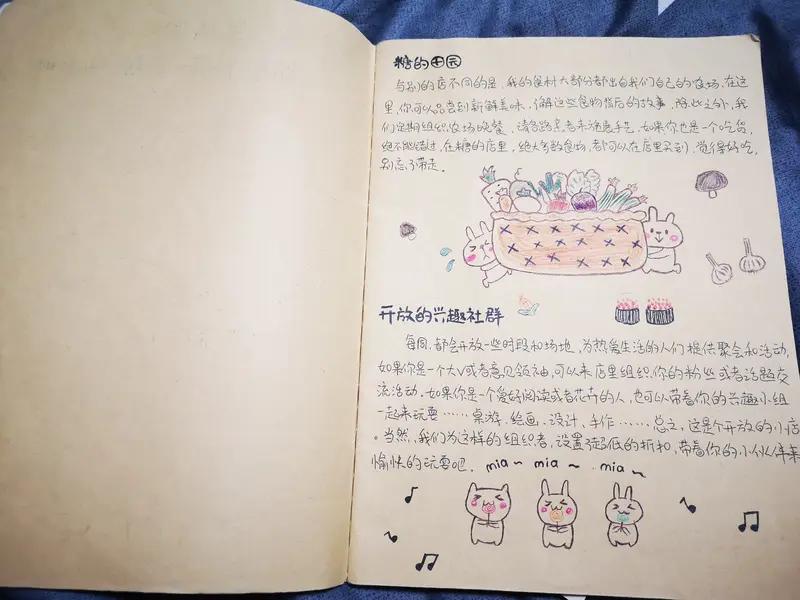 糖的田园
与别的店不同的是，我的食材大部分都出自我们自己的农场，在这
里，你可以品尝到新鲜美味，了解这些食物背后的故事，除此之外，我
们定期组织农场晚餐，请各路高手来施展手艺，如果你也是一个吃货，
绝不能错过，在糖的店里，绝大多数食物，都可以在店里买到，觉得好吃，
别忘了带走。
开放的兴趣社群
每周，都会开放一些时段和场地，为热爱生活的人们提供聚会和活动，
如果你是一个大V或者意见领袖，可以来店里组织你的粉丝或者话题交
流活动。如果你是一个爱好阅读或者花卉的人，也可以带着你的兴趣小组
一起来玩耍……桌游、绘画、设计、手作……总之，这是个开放的小店
。当然，我们为这样的组织者，设置了超低的折扣，带着你的小伙伴来
愉快的玩耍吧。
mia~ mia~ mia~